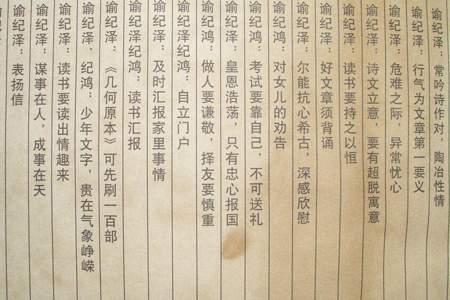 谕纪泽：常吟诗作对，陶冶性情
谕纪泽：行气为文章第一要义
谕纪泽：危难之际，异常忧心
谕纪泽：诗文立意，要有超脱寓意
谕纪泽：读书要持之以恒
谕纪泽：好文章须背诵
谕纪泽：尔能抗心希古，深感欣慰
谕纪泽：对女儿的劝告
谕纪鸿：考试要靠自己，不可送礼
谕纪泽纪鸿：皇恩浩荡，只有忠心报国
谕纪鸿：做人要谦敬，择友要慎重
谕纪泽纪鸿：自立门户
谕纪泽：及时汇报家里事情
谕纪泽纪鸿：读书汇报
谕纪泽：《几何原本》可先刷一百部
谕纪泽，纪鸿：少年文字，贵在气象峥嵘
谕纪泽：读书要读出情趣来
谕纪泽：谋事在人，成事在天
谕纪泽：表扬信